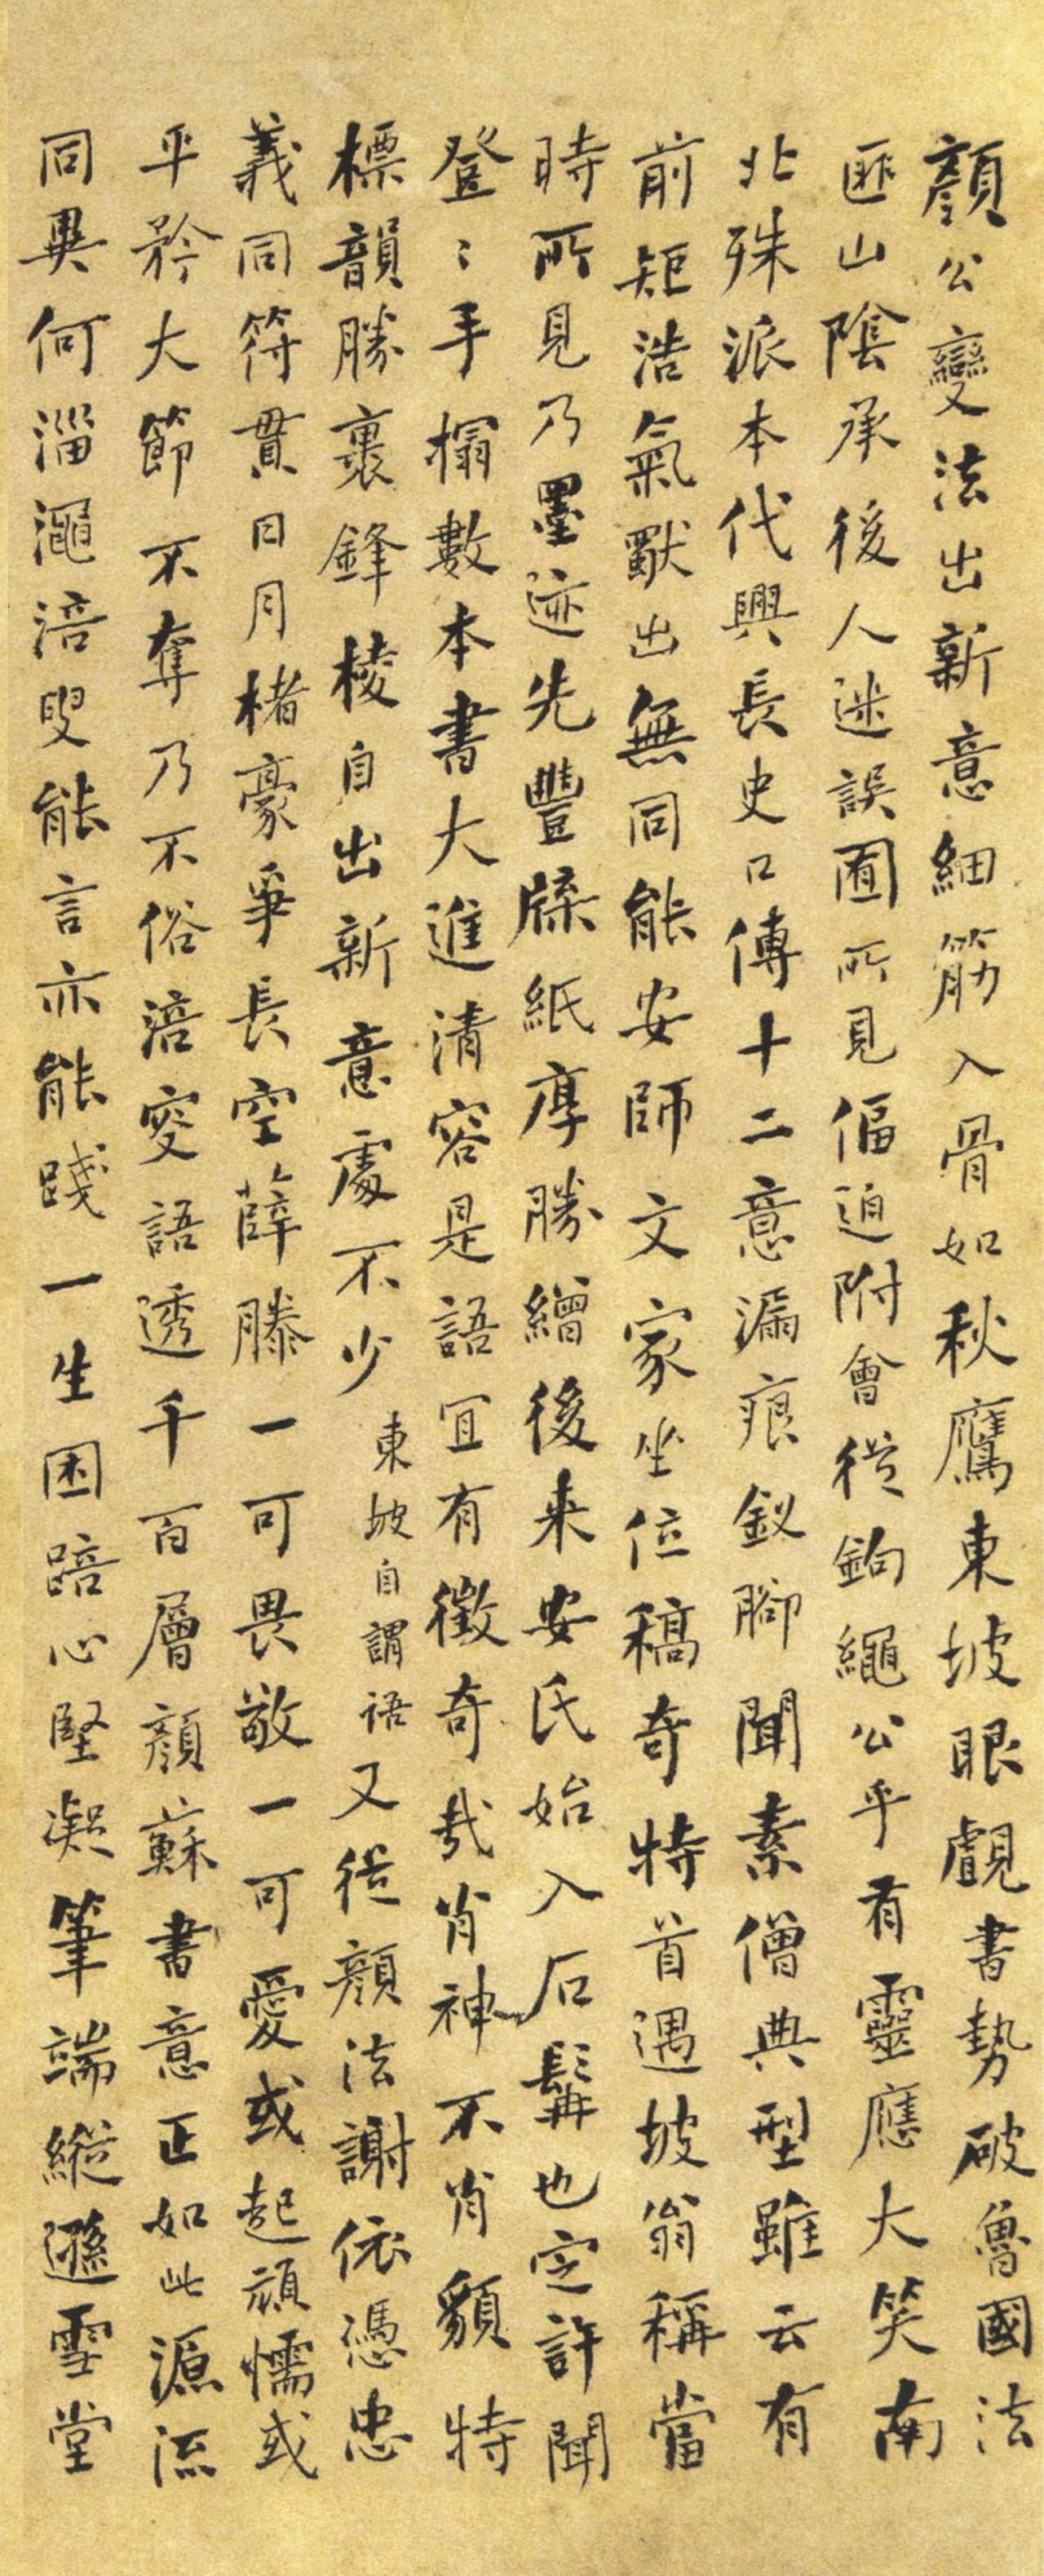 顏公變法出新意細筋入骨如秋鷹東坡眼覷書勢破魯國法
匪山陰承後人迷誤囿所見偪迫附會從鉤繩公乎有靈應大笑南
北殊派本代興長史口傳十二意漏痕釵腳聞素僧典型雖云有
前矩浩氣猷出無同能安師文家坐位稿奇特首遇坡翁稱當
時所見乃墨迹先豐牒紙厚勝繒後来安氏始入石髯也定許聞
登〻手搨數本書大進清容是語宜有徵奇哉肖神不肖貌特
標韻勝裹鋒棱自出新意處不少東坡自謂語又從顏法謝依憑忠
義同符貫日月楮豪爭長空薛滕一可畏敬一可愛或起頑懦或
平矜大節不奪乃不俗涪叟語透千百層顏蘇書意正如此源流
同異何淄澠涪叟能言亦能踐一生困踣心堅凝筆端縱遜雪堂